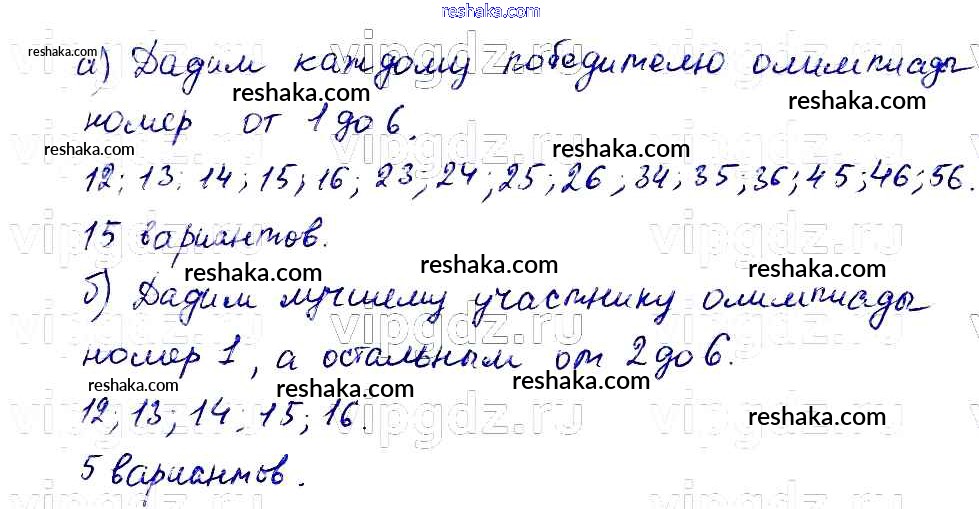 reshaka.com
reshaka.com
а) Дадим каждому победителю олимпиады
reshaka.com reshaka.com
номер от 1 до 6.
reshaka.com reshaka.com
12; 13; 14; 15; 16; 23; 24; 25; 26; 34; 35; 36; 45; 46; 56.
vipgdz.ru vipgdz.ru vipgdz.ru
15 вариантов.
reshaka.com reshaka.com reshaka.com
б) Дадим лучшему участнику олимпиады
vipgdz.ru vipgdz.ru vipgdz.ru
номер 1, а остальным от 2 до 6.
reshaka.com reshaka.com
12; 13; 14; 15; 16.
reshaka.com reshaka.com
vipgdz.ru vipgdz.ru vipgdz.ru
5 вариантов.